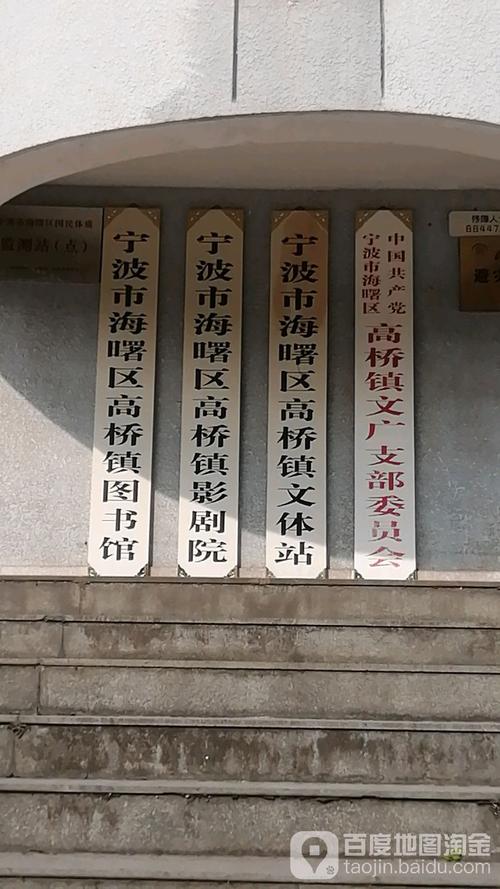 宁波市海曙区国民体质
监测站(点)
宁波市海曙区高桥镇图书馆
宁波市海曙区高桥镇影剧院
宁波市海曙区高桥镇文体站
中国共产党
宁波市海曙区
高桥镇文广支部委员会
残障人
88447
避
百度地图淘金
taojin.baidu.com